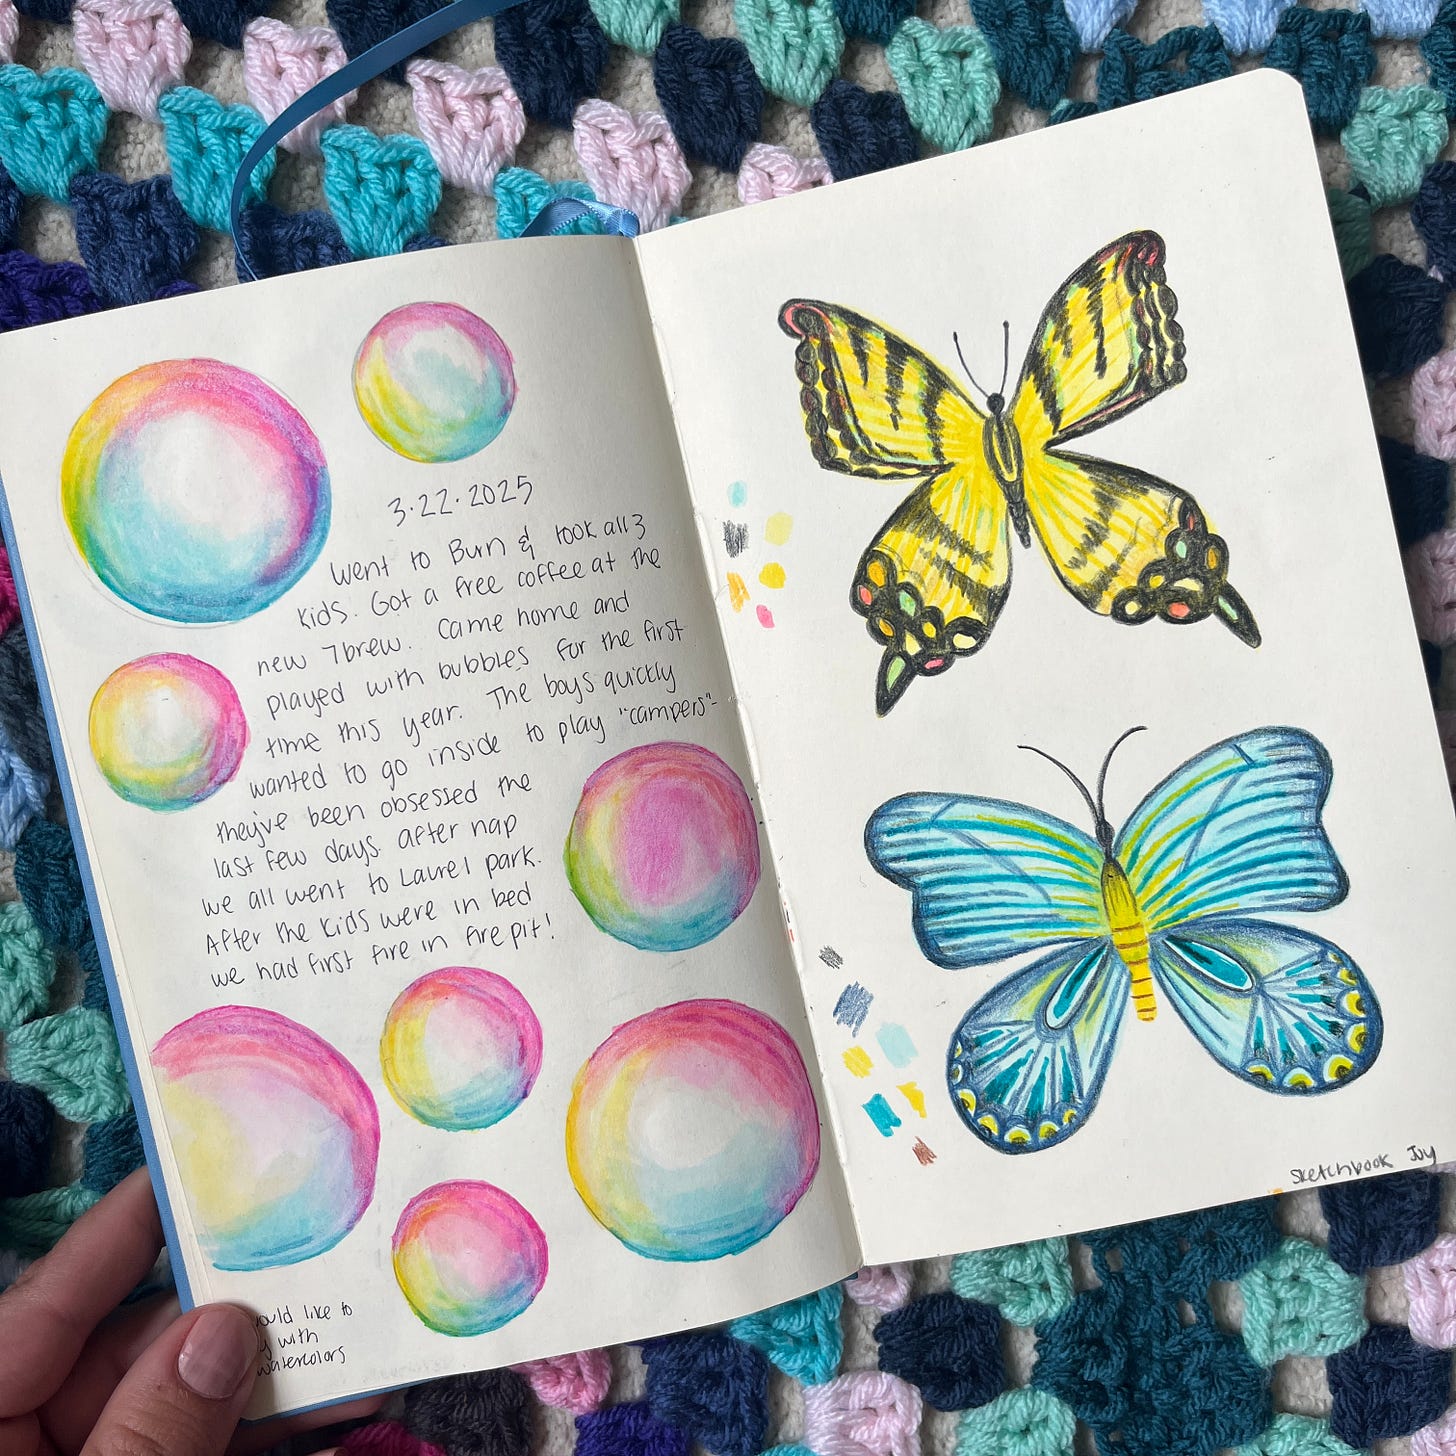 3.22.2025
Went to Burn & took all 3
kids. Got a free coffee at the
new 7brew. Came home and
played with bubbles for the first
time this year. The boys quickly
wanted to go inside to play "campers"-
they've been obsessed the
last few days. after nap
we all went to Laurel park.
After the kids were in bed
we had first fire in fire pit!
ould like to
y with
watercolors
Sketchbook Joy